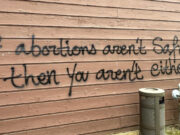 abortions aren't Safe
then you aren't either